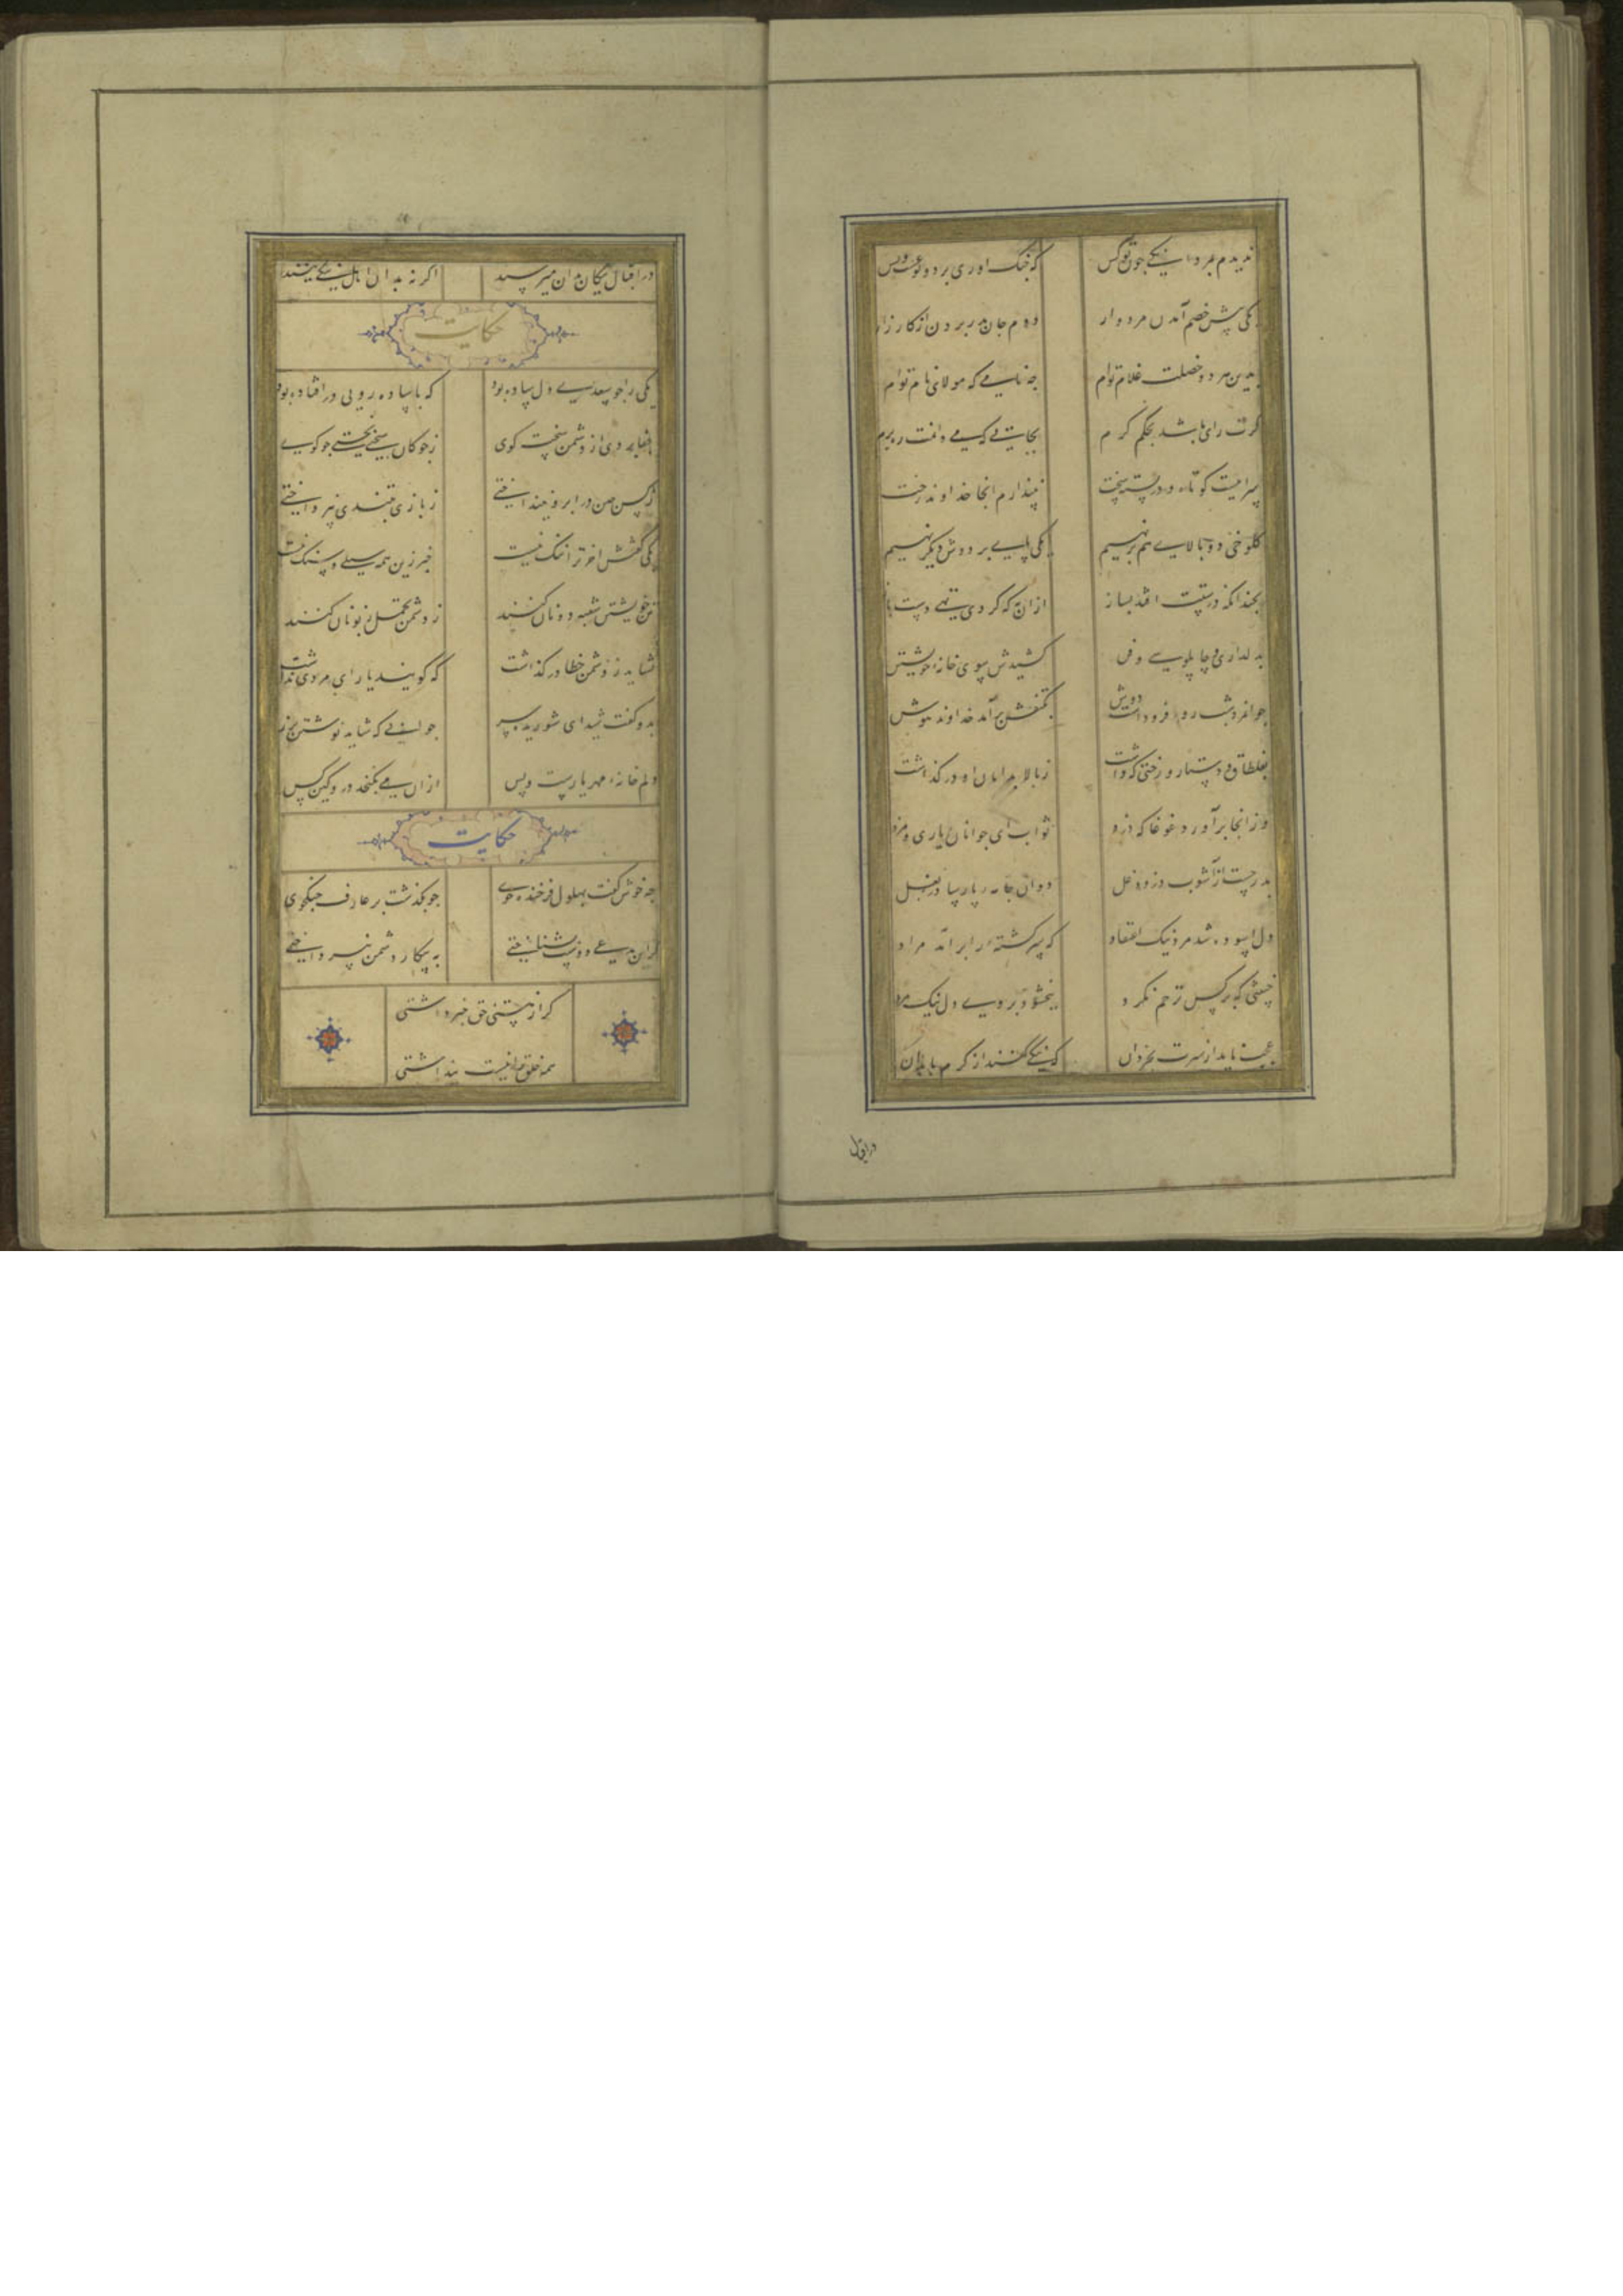 ندیدم بمردانکی چون تو کس
که جنک آوری بر دو نوعست و بس
یکی پیش خصم آمدن مردوار
دوم جان بدر بردن از کارزار
بدین هر دو خصلت غلام توام
چه نامی که مولای نام توام
کرت رای باشد بحکم کرم
بجایی که می دانمت ره برم
سراییست کوتاه و در بسته سخت
نپندارم آنجا خداوند رخت
کلوخی دو بالای هم بر نهیم
یکی پای بر دوش دیکر نهیم
بچندانکه در دستت افتد بساز
از آن به که کردی تهی دست باز
بدلداری و چاپلوسی و فن
کشیدش سوی خانه خویشتن
جوانمرد شب رو فرو داشت دوش
بکتفش برآمد خداوند هوش
بغلطاق و دستار و رختی که داشت
ز بالا بدامان او در کذاشت
وز آنجا برآورد غوغا که دزد
ثواب ای جوانان و یاری و مزد
بدر جست از آشوب دزد دغل
دوان جامه پارسا در بغل
دل آسوده شد مرد نیک اعتقاد
که سرکشته را برآمد مراد
خبیثی که بر کس ترحم نکرد
ببخشود بر وی دل نیک مرد
عجب ناید از سیرت بخردان
که نیکی کنند از کرم با بدان
در اقبال
در اقبال نیکان بدان میزیند
اکرچه بدان اهل نیکی نیند
حکایت
یکی را چو سعدی دل ساده بود
که با ساده رویی در افتاده بود
جفا بردی از دشمن سخت کوی
ز چوکان سختی بجستی چو کوی
ز کس چین در ابرو نینداختی
ز بازی بتندی نپرداختی
یکی کفتش آخر ترا ننک نیست
خبر زین همه سیلی و سنک نیست
تن خویشتن سغبه دونان کنند
ز دشمن تحمل زبونان کنند
نشاید ز دشمن خطا در کذاشت
که کویند یارای مردی نداشت
بدو کفت شیدای شوریده سر
جوابی که شاید نوشتن بزر
دلم خانه مهر یارست و بس
از آن می نکنجد درو کین کس
حکایت
چه خوش کفت بهلول فرخنده خوی
چو بکذشت بر عارف جنکجوی
کر این مدعی دوست بشناختی
به پیکار دشمن نپرداختی
کر از هستی حق خبر داشتی
همه خلق را نیست پنداشتی